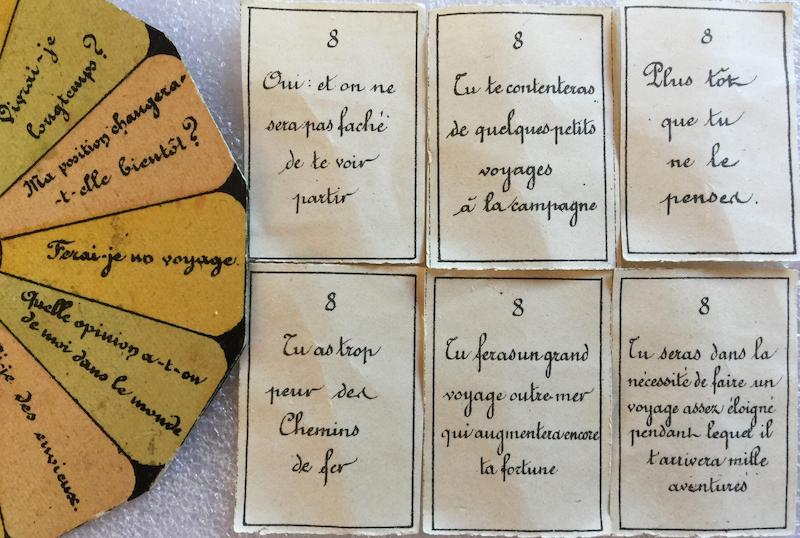 Vivrai-je
longtemps?
Ma position changera-
-t-elle bientôt?
Ferai-je un voyage.
Quelle opinion a-t-on
de moi dans le monde
-je des envieux.
8
Oui: et on ne
sera pas faché
de te voir
partir
8
Tu te contenteras
de quelques petits
voyages
à la campagne
8
Plus tôt
que tu
ne le
penses.
8
Tu as trop
peur des
Chemins
de fer
8
Tu feras un grand
voyage outre-mer
qui augmentera encore
ta fortune
8
Tu seras dans la
nécessité de faire un
voyage assez éloigné
pendant lequel il
t'arrivera mille
aventures